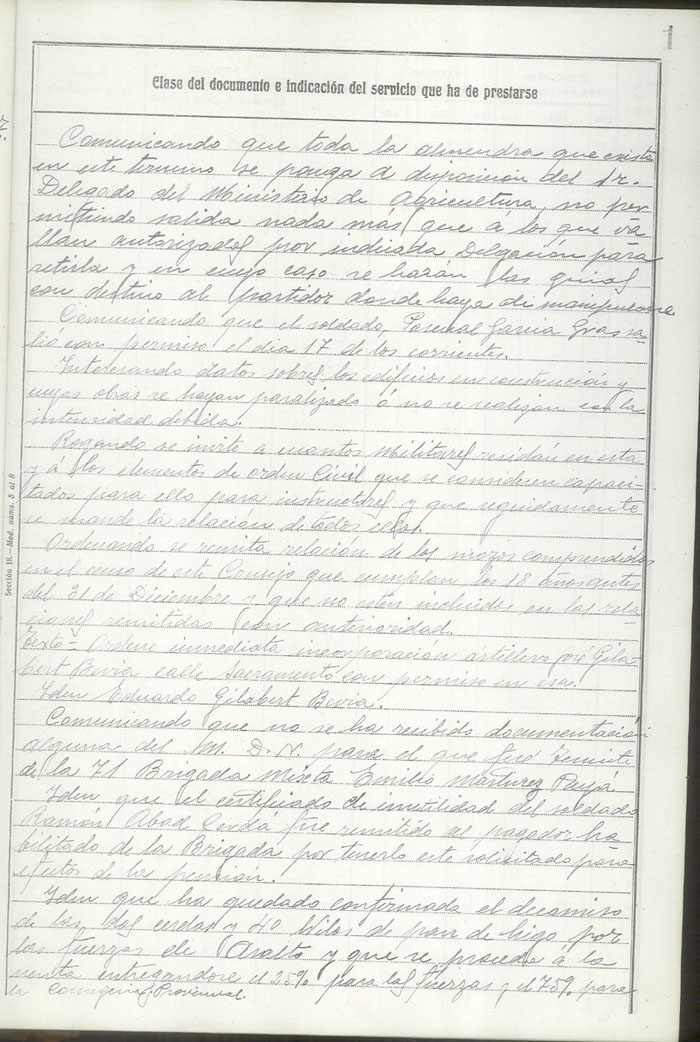 1
Clase del documento e indicación del servicio que ha de prestarse
Comunicando que toda la almendra que exista
en este termino se ponga a disposición del Sr.
Delegado del Ministerio de Agricultura, no per
mitiendo salida nada más que a los que va
llan autorizados por indicada Delgación para
retirla y en cuyo caso se haran las guias
con destino al partidor donde haya de manipularse
Comunicando que el soldado, Pascual Garcia Gras sa-
lió con permiso el dia 17 de los corrientes.
Interesando datos sobre los edificios en construcción y
cuyas obras se hayan paralizado ó no se realizan con la
intensidad debida.
Rogando se invite a cuantos Militares residan en esta
y á los elementos de orden Civil que se consideren capaci-
tados para ello para instructores y que seguidamente
se mande la relación de todos ellos.
Ordenando se remita relación de los mozos comprendidos
en el censo de este Consejo que cumplan los 18 años antes
del 31 de Diciembre y que no esten incluidos en las rela-
ciones remitidas con anterioridad.
Texto = Ordene inmediata incorporacion artillero José Gila-
bert Bevia, calle Sacramento con permiso en esa.
Iden Eduardo Gilabert Bevia.
Comunicando que no se ha recibido documentación
alguna del M. D. N. para el que fué Teniente
de la 71 Brigada Mixta Emilio Martinez Payá
Iden que el certificado de inutilidad del soldado
Ramón Abad Cerdá fue remitido al pagador ha-
bilitado de la Brigada por tenerlo este solicitado para
efectos de la pension.
Iden que ha quedado confirmada el decomiso
de las dos cerdas y 40 kilos de pan de higo por
las fuerzas de Asalto y que se proceda a la
venta entregandose el 25% para las fuerzas y el 75% para
la Consejeria Provincial.
Sección 18.—Mod. núms. 5 al 8